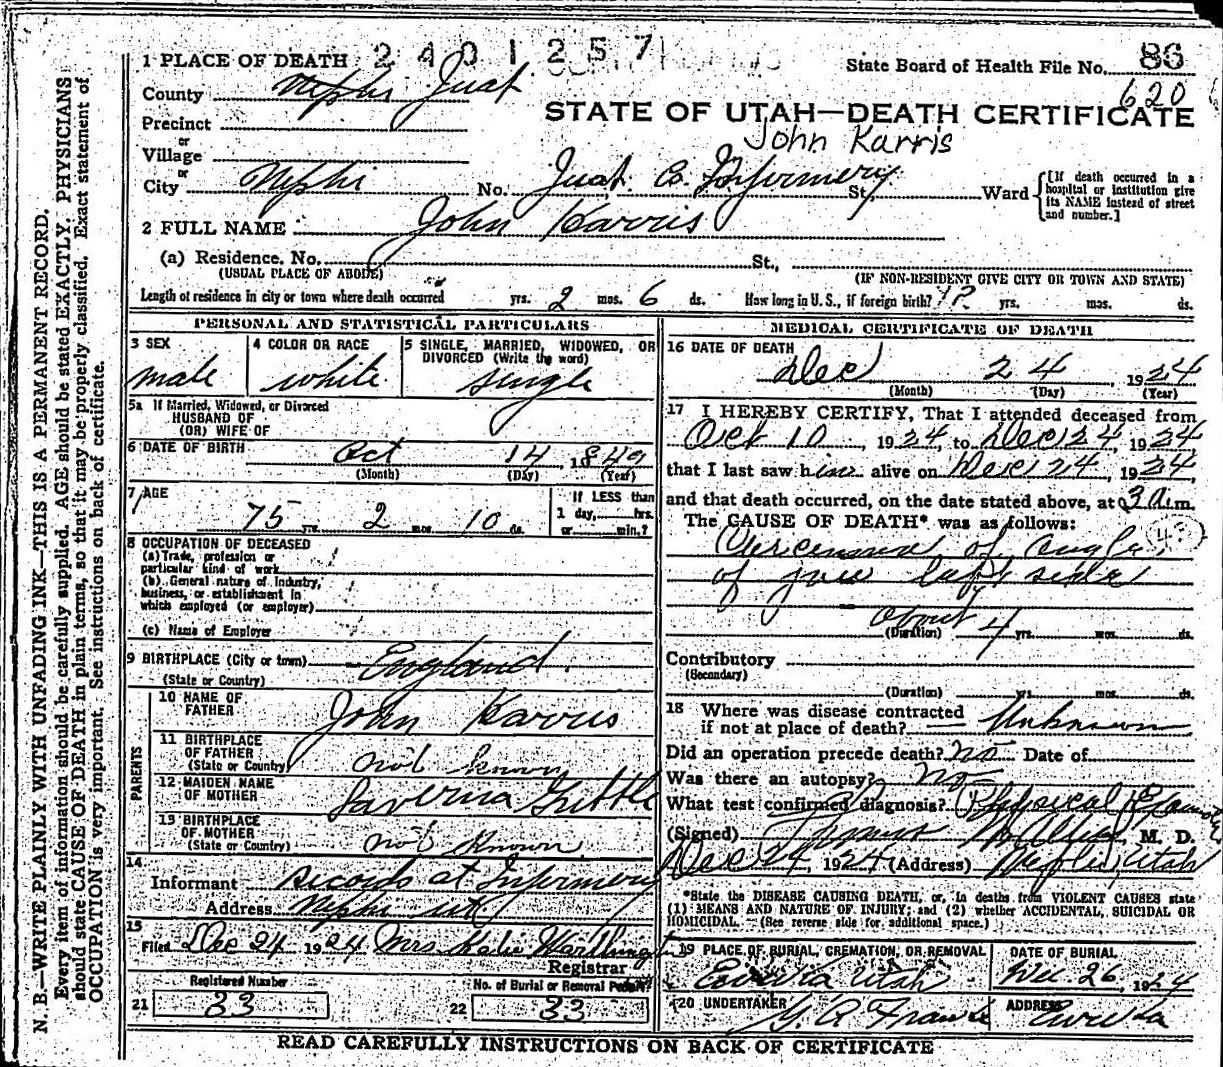 N. B.—WRITE PLAINLY WITH UNFADING INK—THIS IS A PERMANENT RECORD.
Every item of information should be carefully supplied. AGE should be stated EXACTLY. PHYSICIANS
should state CAUSE OF DEATH in plain terms, so that it may be properly classified. Exact statement of
OCCUPATION is very important. See instructions on back of certificate.
2401257
1 PLACE OF DEATH
State Board of Health File No. 86
620
County Nephi Juab
STATE OF UTAH—DEATH CERTIFICATE
Precinct
John Karris
or
Village
or
City Nephi No. Juab Co. Infirmery St. Ward
[If death occurred in a hospital or institution give its NAME instead of street and number.]
2 FULL NAME John Karris
(a) Residence. No. St.,
(USUAL PLACE OF ABODE) (IF NON-RESIDENT GIVE CITY OR TOWN AND STATE)
Length of residence in city or town where death occurred yrs. 2 mos. 6 ds. How long in U. S., if foreign birth? yrs. mos. ds.
PERSONAL AND STATISTICAL PARTICULARS
3 SEX male
4 COLOR OR RACE white
5 SINGLE, MARRIED, WIDOWED, OR DIVORCED (Write the word) single
5a If Married, Widowed, or Divorced
HUSBAND OF
(OR) WIFE OF
6 DATE OF BIRTH Oct 14 1849
(Month) (Day) (Year)
7 AGE
75 yrs. 2 mos. 10 ds.
If LESS than
1 day, hrs.
or min.?
8 OCCUPATION OF DECEASED
(a) Trade, profession or
particular kind of work
(b) General nature of Industry,
business, or establishment in
which employed (or employer)
(c) Name of Employer
9 BIRTHPLACE (City or town) England
(State or Country)
PARENTS
10 NAME OF FATHER John Karris
11 BIRTHPLACE OF FATHER (State or Country) not known
12 MAIDEN NAME OF MOTHER
13 BIRTHPLACE OF MOTHER (State or Country) not known
14
Informant records at Infirmery
Address Nephi Ut
15
Filed Dec 24 1924 Mrs
Registrar
Registered Number
21 33
No. of Burial or Removal Permit?
22 33
MEDICAL CERTIFICATE OF DEATH
16 DATE OF DEATH
Dec 24, 1924
(Month) (Day) (Year)
17 I HEREBY CERTIFY, That I attended deceased from
Oct 10, 1924, to Dec 24, 1924
that I last saw him alive on Dec 24, 1924,
and that death occurred, on the date stated above, at 3 a.m.
The CAUSE OF DEATH* was as follows:
of angle
of jaw left side
about 4
(Duration) yrs. mos. ds.
Contributory
(Secondary)
(Duration) yrs. mos. ds.
18 Where was disease contracted
if not at place of death? Unknown
Did an operation precede death? no Date of
Was there an autopsy? no
What test confirmed diagnosis? Physical
(Signed) M. D.
Dec 24, 1924 (Address) Nephi, Utah
*State the DISEASE CAUSING DEATH, or, in deaths from VIOLENT CAUSES state
(1) MEANS AND NATURE OF INJURY; and (2) whether ACCIDENTAL, SUICIDAL OR
HOMICIDAL. (See reverse side for additional space.)
19 PLACE OF BURIAL, CREMATION, OR REMOVAL
Utah
DATE OF BURIAL
Dec. 26, 1924
20 UNDERTAKER
ADDRESS
Eureka
READ CAREFULLY INSTRUCTIONS ON BACK OF CERTIFICATE